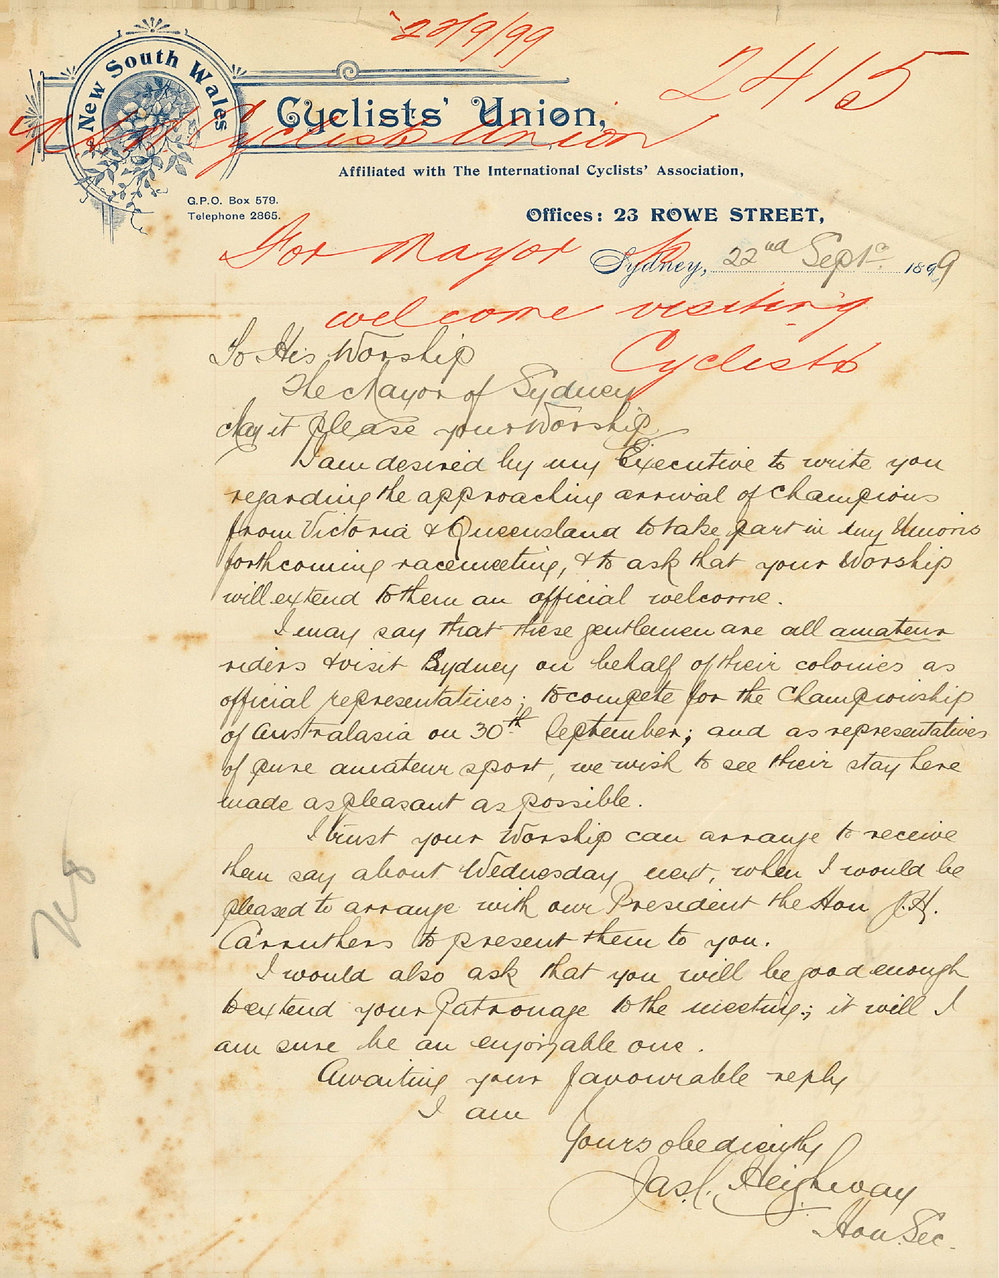 22/9/99
2415
New South Wales
Cyclists' Union,
N.S.W. Cyclists Union
Affiliated with The International Cyclists' Association,
G.P.O. Box 579.
Telephone 2865.
Offices: 23 ROWE STREET,
Sydney, 22nd Sept. 1899
For Mayor to
welcome visiting
Cyclists
To His Worship
The Mayor of Sydney
May it please your Worship
I am desired by my Executive to write you
regarding the approaching arrival of champions
from Victoria & Queensland to take part in my Unions
forthcoming racemeeting, & to ask that your Worship
will extend to them an official welcome.
I may say that these gentlemen are all amateur
riders & visit Sydney on behalf of their colonies as
official representatives; to compete for the Championship
of Australasia on 30th September; and as representatives
of pure amateur sport, we wish to see their stay here
made as pleasant as possible.
I trust your Worship can arrange to receive
them say about Wednesday next, when I would be
pleased to arrange with our President the Hon J.H.
Carruthers to present them to you.
I would also ask that you will be good enough
to extend your Patronage to the meeting; it will I
am sure be an enjoyable one.
Awaiting your favourable reply
I am
Yours obediently
Jas. Heighway
Hon. Sec.